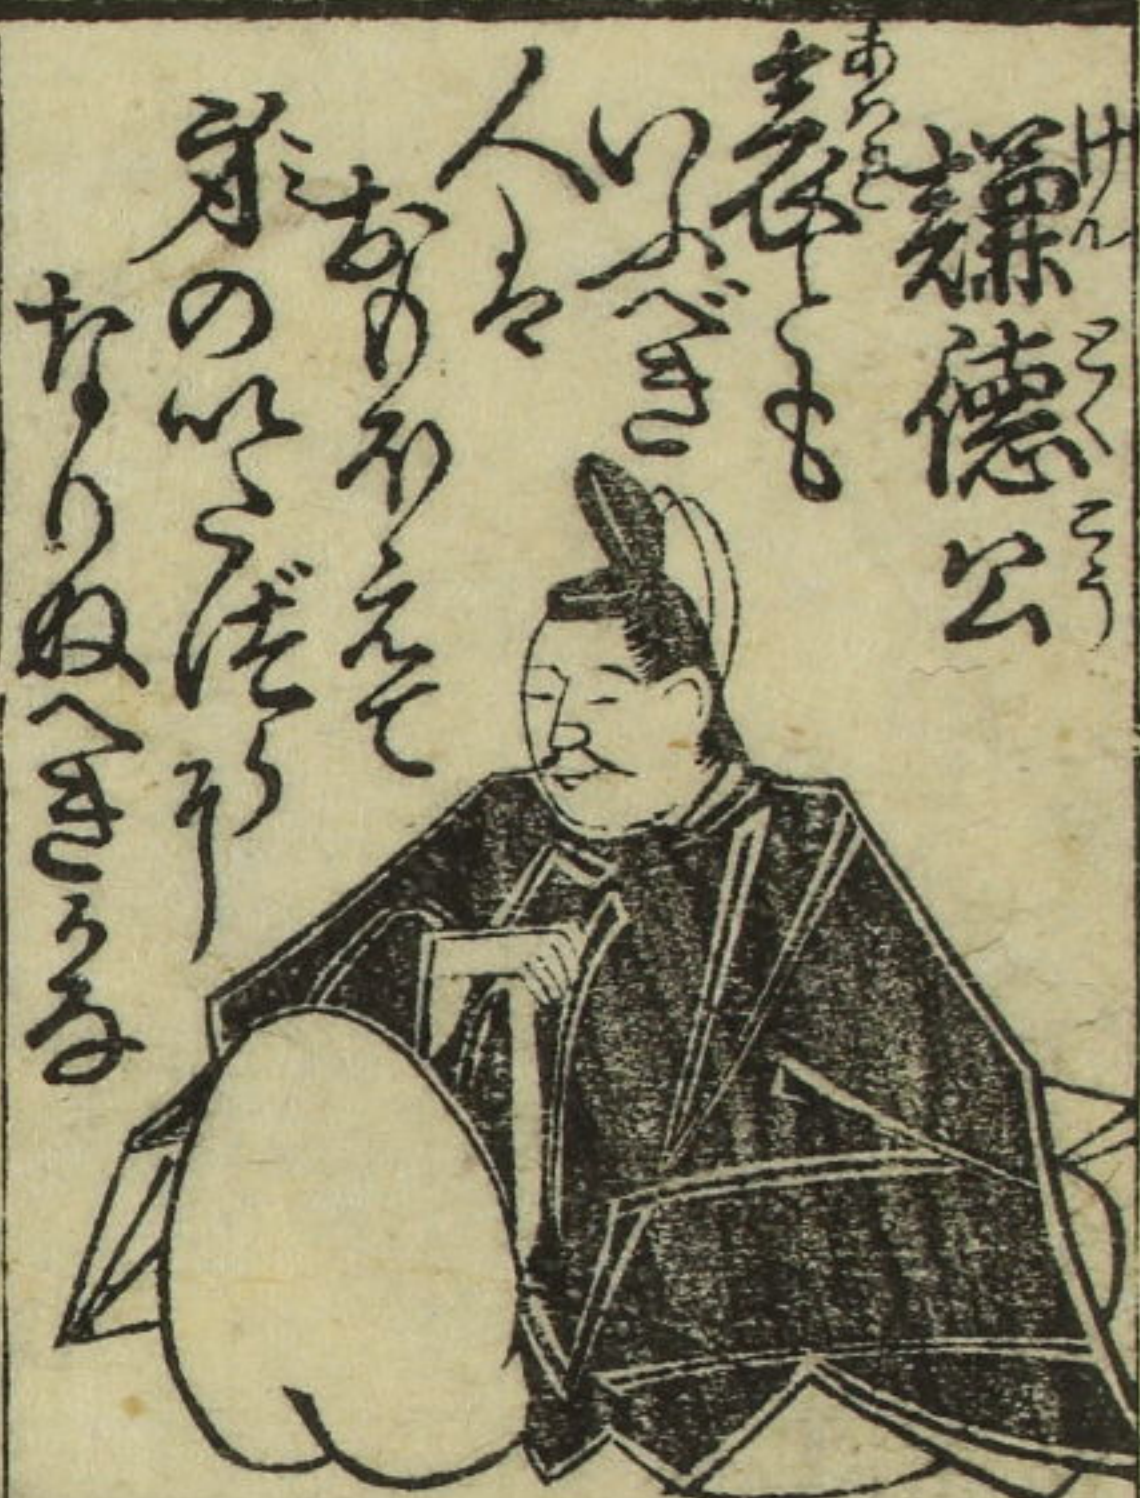 謙徳公
けんとくこう
哀とも
あはれ
いふべき
人は
おもほえて
身のいたづら
み
に
なりぬへきかな